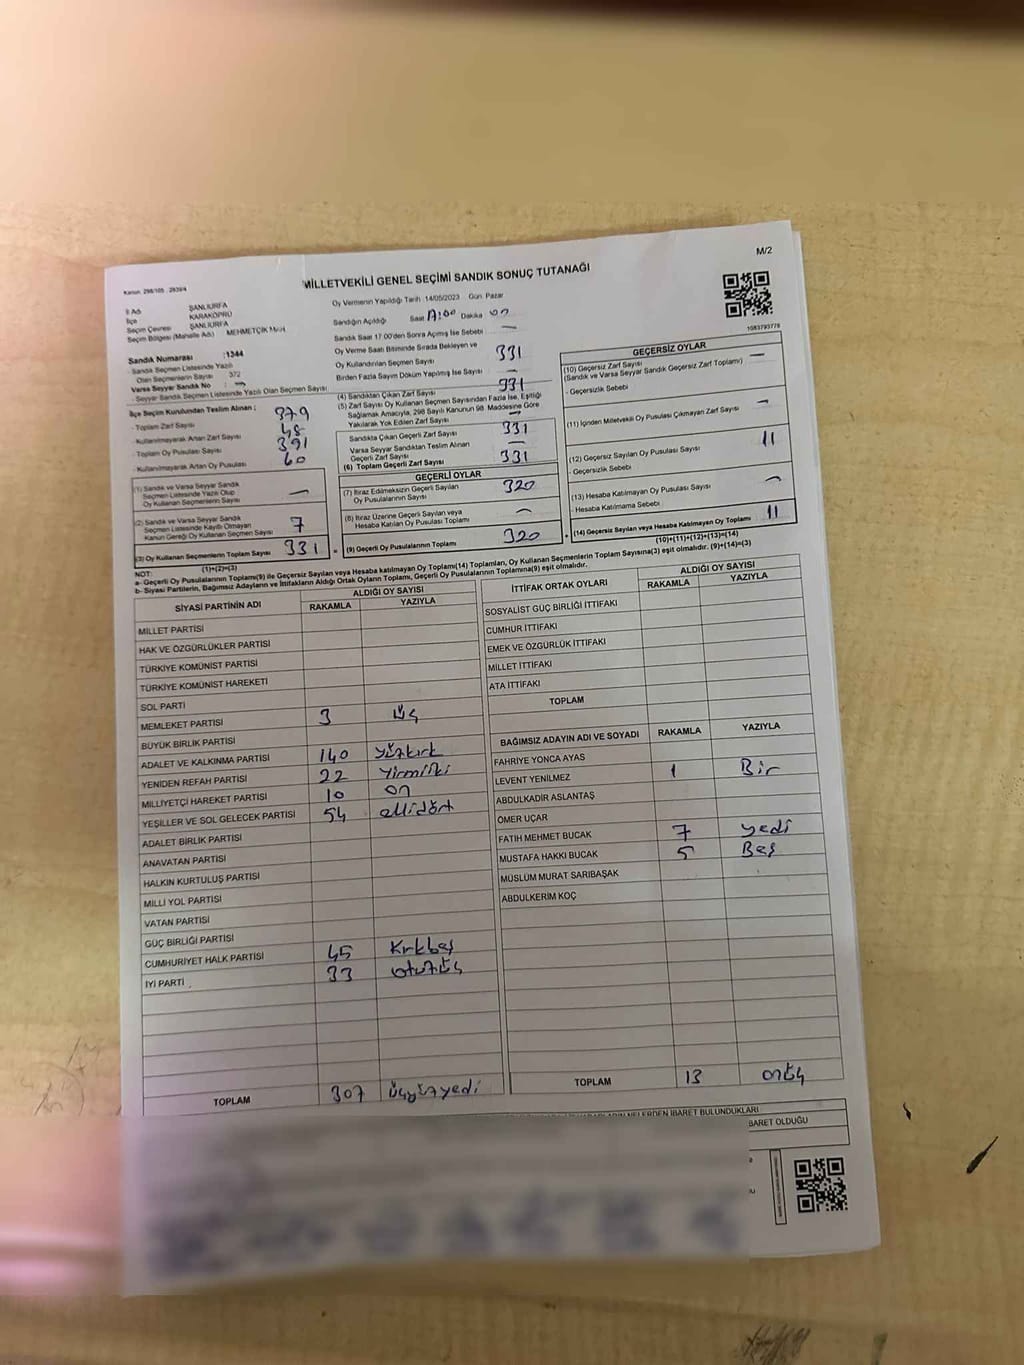 M/2
Kanun: 298/105 - 2839/4
MİLLETVEKİLİ GENEL SEÇİMİ SANDIK SONUÇ TUTANAĞI
1083793778
İl Adı ŞANLIURFA
İlçe KARAKÖPRÜ
Seçim Çevresi ŞANLIURFA
Seçim Bölgesi (Mahalle Adı) MEHMETÇİK MAH.
Sandık Numarası :1344
- Sandık Seçmen Listesinde Yazılı
Olan Seçmenlerin Sayısı 372
Varsa Seyyar Sandık No : —
- Seyyar Sandık Seçmen Listesinde Yazılı Olan Seçmen Sayısı
İlçe Seçim Kurulundan Teslim Alınan ;
- Toplam Zarf Sayısı 379
- Kullanılmayarak Artan Zarf Sayısı 48
- Toplam Oy Pusulası Sayısı 391
- Kullanılmayarak Artan Oy Pusulası 60
(1) Sandık ve Varsa Seyyar Sandık
Seçmen Listesinde Yazılı Olup
Oy Kullanan Seçmenlerin Sayısı —
(2) Sandık ve Varsa Seyyar Sandık
Seçmen Listesinde Kayıtlı Olmayan
Kanun Gereği Oy Kullanan Seçmen Sayısı 7
(3) Oy Kullanan Seçmenlerin Toplam Sayısı 331
(1)+(2)=(3)
Oy Vermenin Yapıldığı Tarih :14/05/2023 Gün: Pazar
Sandığın Açıldığı Saat 17:00 Dakika
Sandık Saat 17:00'den Sonra Açmış İse Sebebi —
Oy Verme Saati Bitiminde Sırada Bekleyen ve
Oy Kullandırılan Seçmen Sayısı 331
Birden Fazla Sayım Döküm Yapılmış İse Sayısı —
(4) Sandıktan Çıkan Zarf Sayısı 331
(5) Zarf Sayısı Oy Kullanan Seçmen Sayısından Fazla İse, Eşitliği
Sağlamak Amacıyla, 298 Sayılı Kanunun 98. Maddesine Göre
Yakılarak Yok Edilen Zarf Sayısı —
Sandıkta Çıkan Geçerli Zarf Sayısı 331
Varsa Seyyar Sandıktan Teslim Alınan
Geçerli Zarf Sayısı —
(6) Toplam Geçerli Zarf Sayısı 331
GEÇERLİ OYLAR
(7) İtiraz Edilmeksizin Geçerli Sayılan
Oy Pusulalarının Sayısı 320
(8) İtiraz Üzerine Geçerli Sayılan veya
Hesaba Katılan Oy Pusulası Toplamı —
(9) Geçerli Oy Pusulalarının Toplamı 320
GEÇERSİZ OYLAR
(10) Geçersiz Zarf Sayısı —
(Sandık ve Varsa Seyyar Sandık Geçersiz Zarf Toplamı)
- Geçersizlik Sebebi
(11) İçinden Milletvekili Oy Pusulası Çıkmayan Zarf Sayısı —
(12) Geçersiz Sayılan Oy Pusulası Sayısı 11
- Geçersizlik Sebebi
(13) Hesaba Katılmayan Oy Pusulası Sayısı —
- Hesaba Katılmama Sebebi
(14) Geçersiz Sayılan veya Hesaba Katılmayan Oy Toplamı 11
(10)+(11)+(12)+(13)=(14)
NOT:
a- Geçerli Oy Pusulalarının Toplamı(9) ile Geçersiz Sayılan veya Hesaba katılmayan Oy Toplamı(14) Toplamları, Oy Kullanan Seçmenlerin Toplam Sayısına(3) eşit olmalıdır. (9)+(14)=(3)
b- Siyasi Partilerin, Bağımsız Adayların ve İttifakların Aldığı Ortak Oyların Toplamı, Geçerli Oy Pusulalarının Toplamına(9) eşit olmalıdır.
SİYASİ PARTİNİN ADI ALDIĞI OY SAYISI
RAKAMLA YAZIYLA
MİLLET PARTİSİ
HAK VE ÖZGÜRLÜKLER PARTİSİ
TÜRKİYE KOMÜNİST PARTİSİ
TÜRKİYE KOMÜNİST HAREKETİ
SOL PARTİ
MEMLEKET PARTİSİ 3 üç
BÜYÜK BİRLİK PARTİSİ
ADALET VE KALKINMA PARTİSİ 140 yüzkırk
YENİDEN REFAH PARTİSİ 22 yirmiiki
MİLLİYETÇİ HAREKET PARTİSİ 10 on
YEŞİLLER VE SOL GELECEK PARTİSİ 54 ellidört
ADALET BİRLİK PARTİSİ
ANAVATAN PARTİSİ
HALKIN KURTULUŞ PARTİSİ
MİLLİ YOL PARTİSİ
VATAN PARTİSİ
GÜÇ BİRLİĞİ PARTİSİ
CUMHURİYET HALK PARTİSİ 45 Kırkbeş
İYİ PARTİ 33 otuzüç
TOPLAM 307 üçyüzyedi
İTTİFAK ORTAK OYLARI ALDIĞI OY SAYISI
RAKAMLA YAZIYLA
SOSYALİST GÜÇ BİRLİĞİ İTTİFAKI
CUMHUR İTTİFAKI
EMEK VE ÖZGÜRLÜK İTTİFAKI
MİLLET İTTİFAKI
ATA İTTİFAKI
TOPLAM
BAĞIMSIZ ADAYIN ADI VE SOYADI RAKAMLA YAZIYLA
FAHRİYE YONCA AYAS
LEVENT YENİLMEZ 1 Bir
ABDULKADİR ASLANTAŞ
ÖMER UÇAR
FATİH MEHMET BUCAK 7 yedi
MUSTAFA HAKKI BUCAK 5 Beş
MÜSLÜM MURAT SARIBAŞAK
ABDULKERİM KOÇ
TOPLAM 13 onüç
NELERDEN İBARET BULUNDUKLARI
BARET OLDUĞU